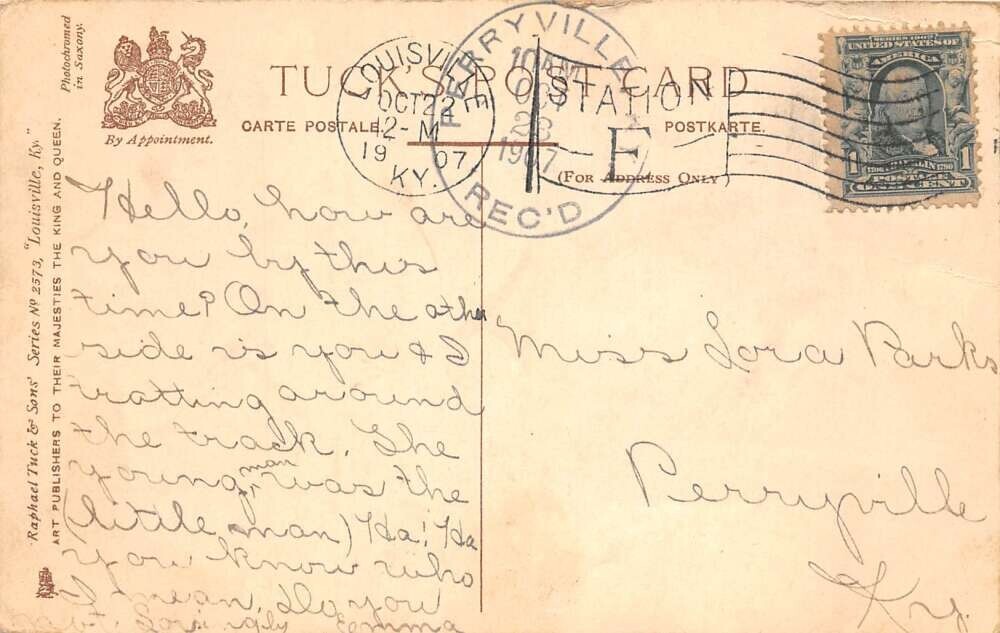 Photochromed
in Saxony.
By Appointment.
TUCK'S POST CARD
CARTE POSTALE.
POSTKARTE.
(FOR ADDRESS ONLY)
LOUISVILLE
OCT 22
2 - M
19 07
KY.
PERRYVILLE
10 AM
OCT
23
1907
REC'D
STATION
E
SERIES 1902
UNITED STATES OF
AMERICA
FRANKLIN
POSTAGE
1 ONE CENT 1
Raphael Tuck & Sons' Series No 2573, "Louisville, Ky."
ART PUBLISHERS TO THEIR MAJESTIES THE KING AND QUEEN.
Hello, how are
you by this
time? On the other
side is you & I
trotting around
the track. The
young man was the
(little man) Ha! Ha
you know who
I mean. Do you
Emma
Miss Lora Parks
Perryville
Ky.